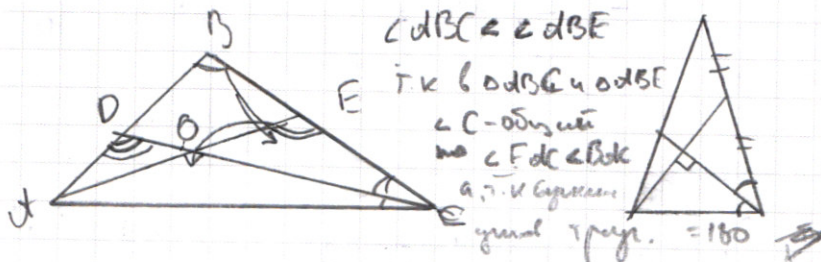 B
D
O
E
A
C
∠ABC < ∠ABE
т.к в △ABC и △ABE
∠C-общий
∠EAC < BAC
а, т.к сумма
углов треуг. = 180 ⇒